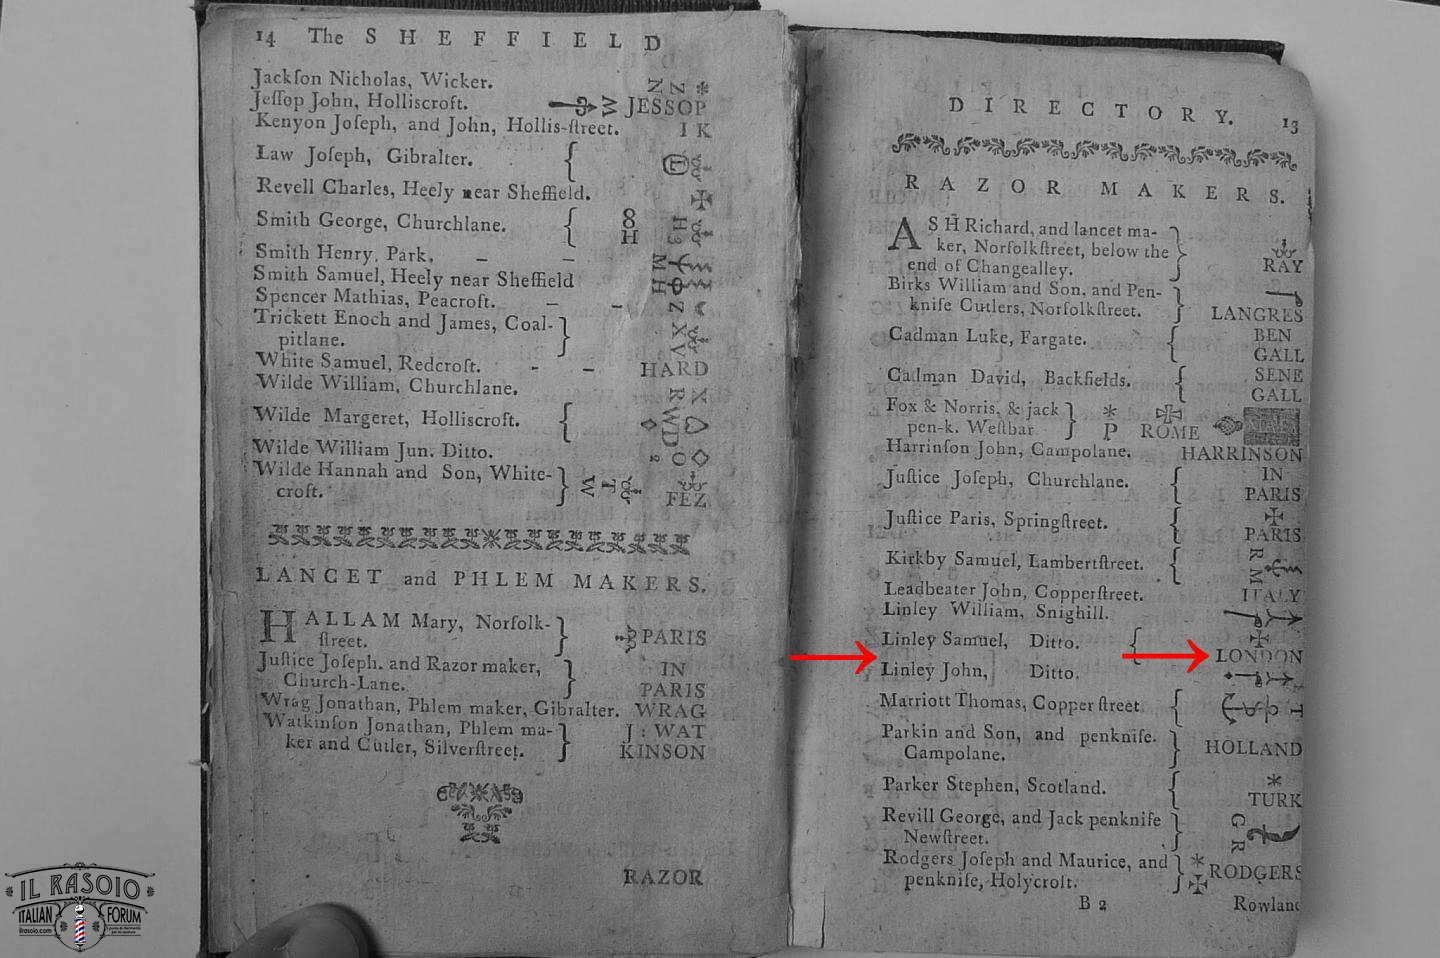 14 The SHEFFIELD
Jackſon Nicholas, Wicker.
Jeſſop John, Holliscroft. W JESSOP
Kenyon Joſeph, and John, Hollis-ſtreet. I K
Law Joſeph, Gibralter.
Revell Charles, Heely near Sheffield.
Smith George, Churchlane. 8 H
Smith Henry, Park.
Smith Samuel, Heely near Sheffield
Spencer Mathias, Peacroft.
Trickett Enoch and James, Coal-
pitlane.
White Samuel, Redcroft. HARD
Wilde William, Churchlane.
Wilde Margeret, Holliscroft.
Wilde William Jun. Ditto.
Wilde Hannah and Son, White-
croft. W T FEZ
LANCET and PHLEM MAKERS.
HALLAM Mary, Norfolk-
ſtreet. PARIS
Juſtice Joſeph. and Razor maker, IN
Church-Lane. PARIS
Wrag Jonathan, Phlem maker, Gibralter. WRAG
Watkinſon Jonathan, Phlem ma- J : WAT
ker and Cutler, Silverſtreet. KINSON
RAZOR
DIRECTORY. 13
RAZOR MAKERS.
ASH Richard, and lancet ma-
ker, Norfolkſtreet, below the
end of Changealley. RAY
Birks William and Son, and Pen-
knife Cutlers, Norfolkſtreet. LANGRES
Cadman Luke, Fargate. BEN
GALL
Cadman David, Backfields. SENE
GALL
Fox & Norris, & jack
pen-k. Weſtbar P ROME
Harrinſon John, Campolane. HARRINSON
Juſtice Joſeph, Churchlane. IN
PARIS
Juſtice Paris, Springſtreet.
PARIS
Kirkby Samuel, Lambertſtreet. R M
Leadbeater John, Copperſtreet. ITALY
Linley William, Snighill.
Linley Samuel, Ditto.
LONDON
Linley John, Ditto.
Marriott Thomas, Copper ſtreet T
Parkin and Son, and penknife.
Campolane. HOLLAND
Parker Stephen, Scotland.
TURK
Revill George, and Jack penknife
Newſtreet. G R
Rodgers Joſeph and Maurice, and
penknife, Holycroft. RODGERS
B 2 Rowland
IL RASOIO
ITALIAN FORUM
ilrasoio.com